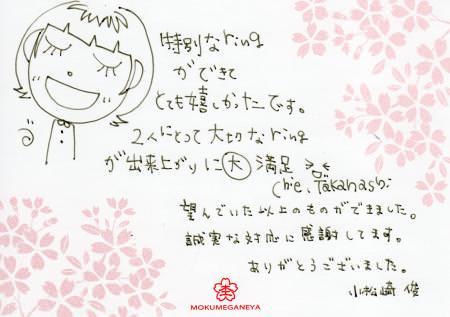 特別なring
ができて
とても嬉しかったです。
2人にとって大切なring
が出来上がりに大満足
Chie.Takanashi
望んでいた以上のものができました。
誠実な対応に感謝してます。
ありがとうございました。
小松崎 俊
MOKUMEGANEYA